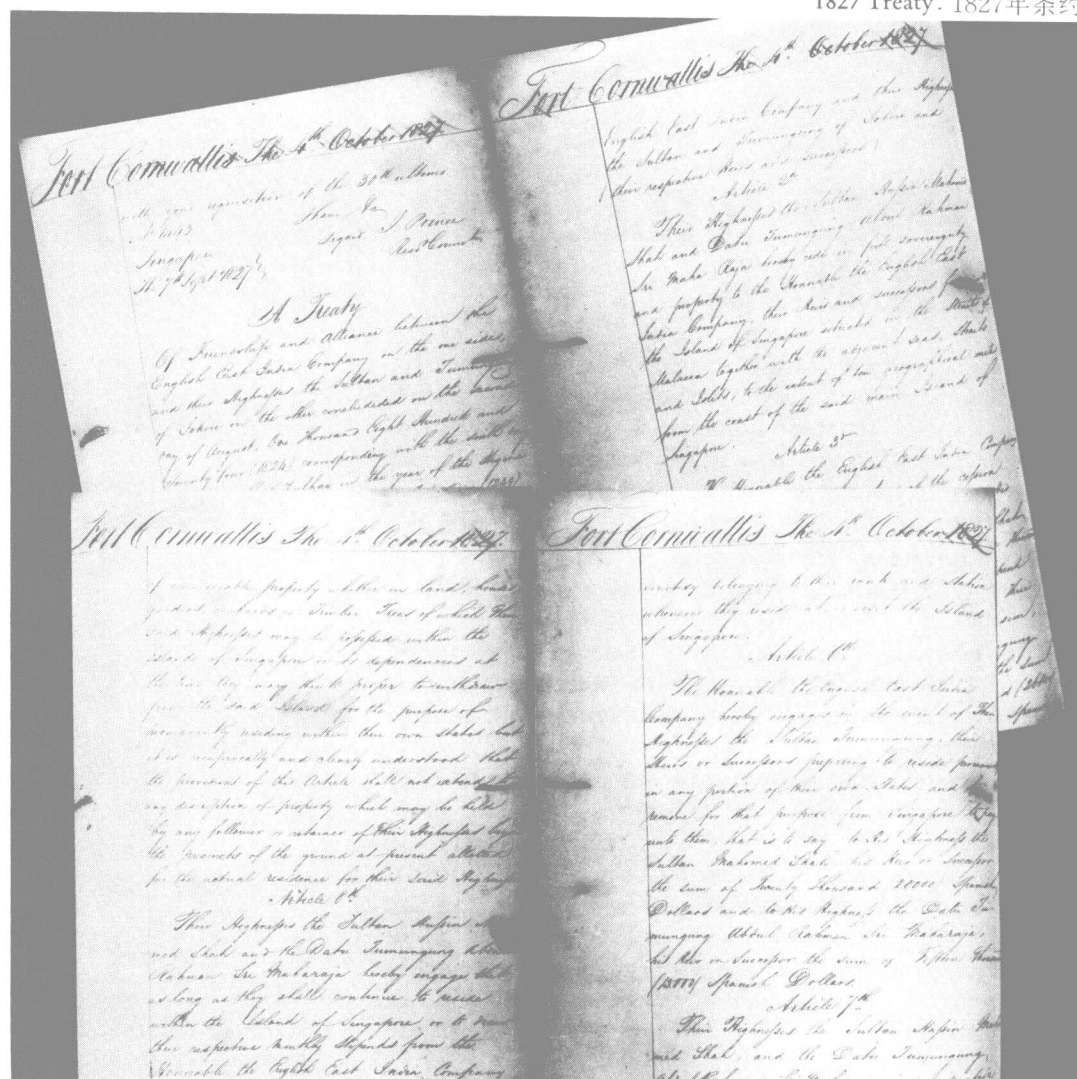 1827 Treaty. 1827年条约
Fort Cornwallis The 4th October 1827
with your requisition of the 30th ultimo
Singapore
The 7th Sept 1827
A Treaty
Of Friendship and Alliance between the
English East India Company on the one side,
and their Highnesses the Sultan and
of Johore on the other concluded on the
day of August, One Thousand Eight Hundred and
Twenty Four (1824) corresponding with the sixth
in the year of the
Fort Cornwallis The 4th October 1827
English East India Company and their
the Sultan and Tumungung of Johore and
their respective Heirs and successors;
Article 2d
Their Highnesses the Sultan Hussin Mahomed
Shah and Datu Tumungung Abdul Rahman
Sri Maha Raja hereby cede in full sovereignty
and property to the Honorable the English East
India Company, their Heirs and successors for
the Island of Singapore situated in the Straits of
Malacca together with the adjacent seas, straits
and Islets, to the extent of ten geographical miles
from the coast of the said main Island of
Singapore.
Article 3d
The Honorable the English East India Company
Fort Cornwallis The 4th October 1827.
of immoveable property whether in land, house
gardens, orchards or Timber Trees of which Their
said Highnesses may be possessed within the
islands of Singapore or its dependencies at
the time they may think proper to withdraw
from the said Island for the purpose of
permanently residing within their own states but
it is reciprocally and clearly understood that
the provisions of this Article shall not extend to
any description of property which may be held
by any follower or retainer of their Highnesses
the precincts of the ground at present allotted
for the actual residence for their said
Article 5th
Their Highnesses the Sultan Hussin
med Shah and the Datu Tumungung Abdul
Rahman Sri Maharaja hereby engage that
as long as they shall continue to reside
within the Island of Singapore, or to draw
their respective monthly stipends from the
Honorable the English East India Company
Fort Cornwallis The 4th October 1827.
courtesy belonging to their rank and station
whenever they reside at or visit the Island
of Singapore.
Article 6th
The Honorable the English East India
Company hereby engages in the event of Their
Highnesses the Sultan Tumungung, their
Heirs or Successors preferring to reside
in any portion of their own States and to
remove for that purpose from Singapore to pay
unto them, that is to say to His Highness the
Sultan Mahomed Shah his Heir or Successor
the sum of Twenty Thousand 20000 Spanish
Dollars and to His Highness the Datu Tu-
mungung Abdul Rahman Sri Maharaja,
his Heir or Successor the sum of Fifteen
(15000) Spanish Dollars.
Article 7th
Their Highnesses the Sultan Hussin
med Shah, and the Datu Tumungung